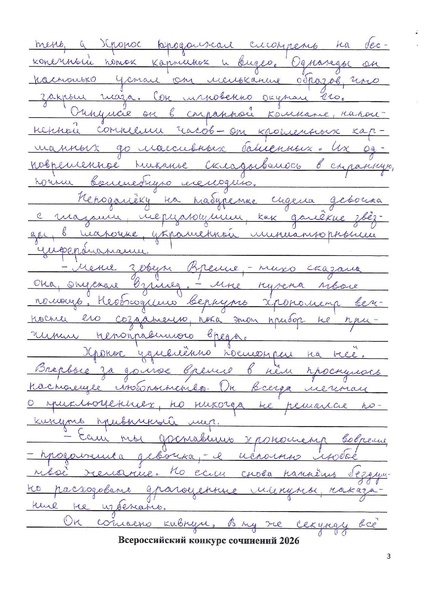 тень, а Хронос продолжал смотреть на бес-
конечный поток картинок и видео. Однажды он
настолько устал от мелькания образов, что
закрыл глаза. Сон мгновенно окутал его.
Очнулся он в странной комнате, напол-
ненной сотнями часов – от крошечных кар-
манных до массивных башенных. Их од-
новременное тиканье складывалось в странную,
почти волшебную мелодию.
Неподалёку на табуретке сидела девочка
с глазами, мерцающими, как далёкие звёз-
ды, в шапочке, украшенной миниатюрными
циферблатами.
– Меня зовут Время, – тихо сказала
она, опуская взгляд. – Мне нужна твоя
помощь. Необходимо вернуть хронометр веч-
ности его создателю, пока этот прибор не при-
чинил непоправимого вреда.
Хронос удивлённо посмотрел на неё.
Впервые за долгое время в нём проснулось
настоящее любопытство. Он всегда мечтал
о приключениях, но никогда не решался по-
кинуть привычный мир.
– Если ты доставишь хронометр вовремя
– продолжила девочка, – я исполню любое
твоё желание. Но если снова начнёшь бездум-
но расходовать драгоценные минуты, наказа-
ние не избежать.
Он согласно кивнул. В ту же секунду всё
Всероссийский конкурс сочинений 2026
3